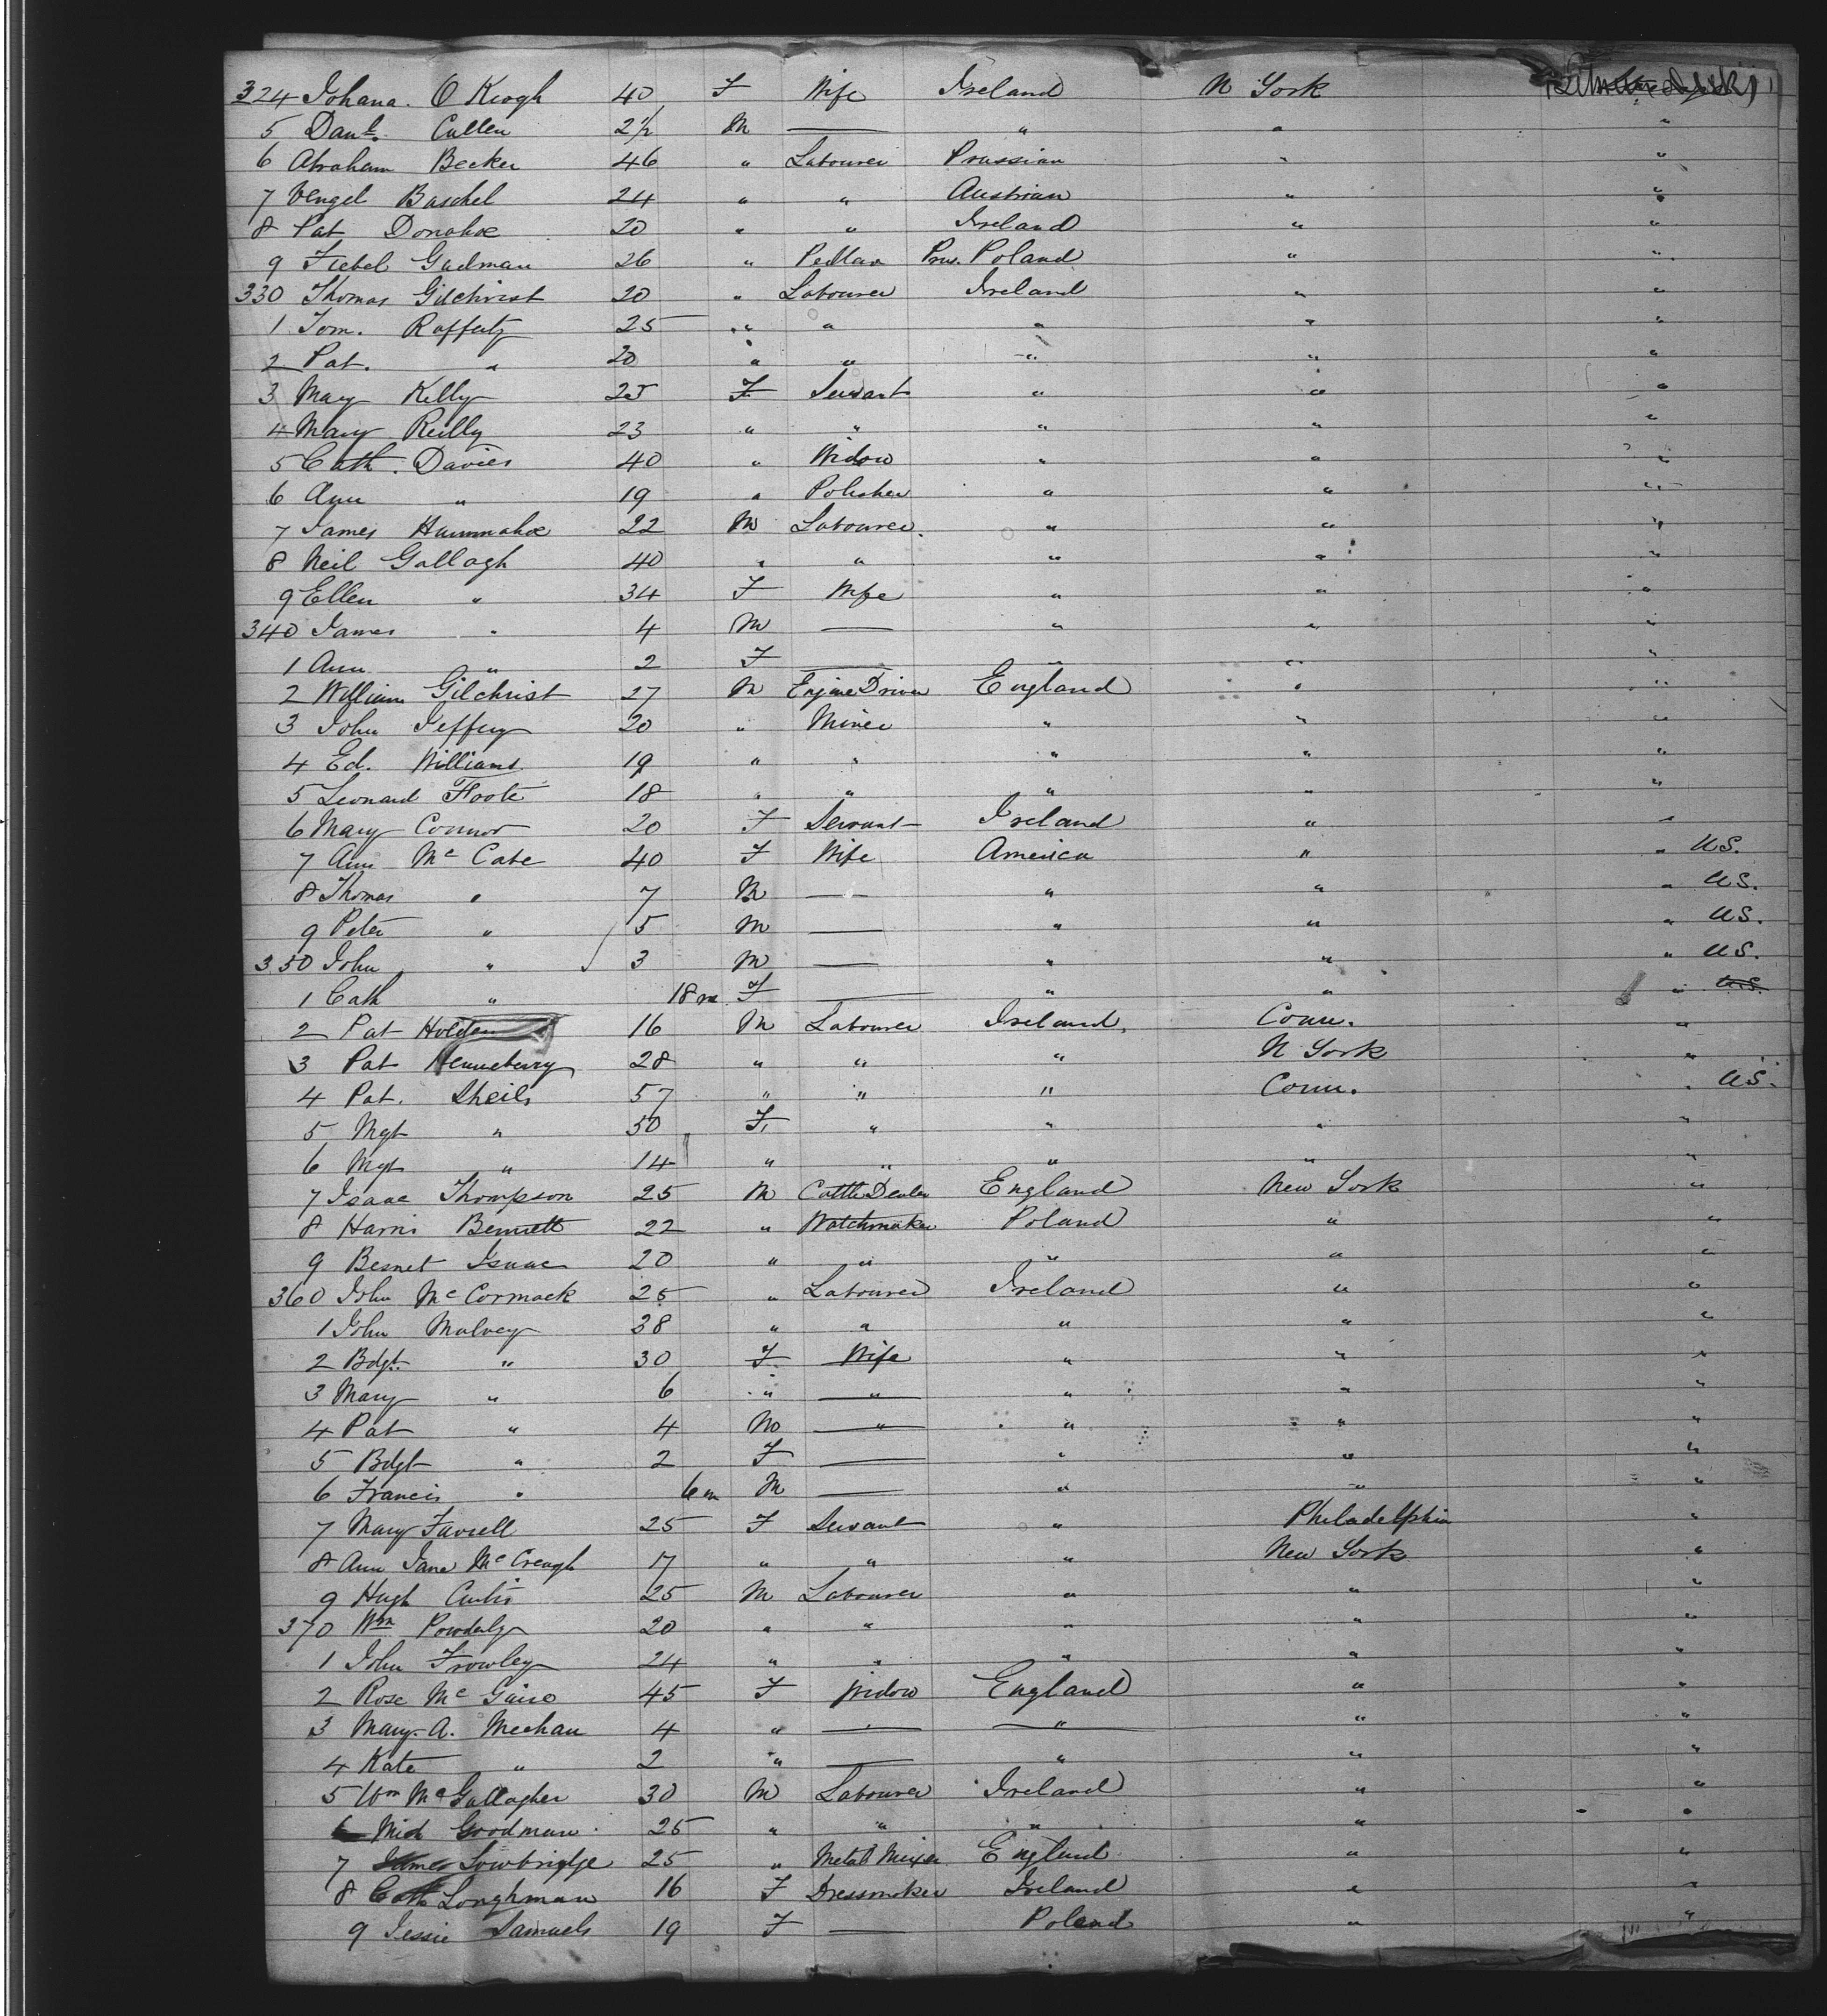 324 Johana. O Keogh 40 F Wife Ireland N York
5 Danl. Cullen 2½ M — " " "
6 Abraham Becker 46 " Labourer Prussian " "
7 Wengel Baschel 24 " " Austrian " "
8 Pat Donohoe 20 " " Ireland " "
9 Fiebel Gudman 26 " Pedlar Prus. Poland " "
330 Thomas Gilchrist 20 " Labourer Ireland " "
1 Tom. Rafferty 25 " " " " "
2 Pat. " 20 " " " " "
3 Mary Kelly 25 F Servant " " "
4 Mary Reilly 23 " " " " "
5 Cath. Davies 40 " Widow " " "
6 Ann " 19 " Polisher " " "
7 James Hammahoe 22 M Labourer. " " "
8 Neil Gallagh 40 " " " " "
9 Ellen " 34 F Wife " " "
340 James " 4 M — " " "
1 Ann " 2 F — " " "
2 William Gilchrist 27 M Engine Driver England " "
3 John Jeffery 20 " Miner " " "
4 Ed. Williams 19 " " " " "
5 Leonard Floote 18 " " " " "
6 Mary Connor 20 F Servant Ireland " "
7 Ann Mc Cabe 40 F Wife America " " US.
8 Thomas " 7 M — " " " US.
9 Peter " 5 M — " " " US.
350 John " 3 M — " " " US.
1 Cath " 18 m F — " " " US.
2 Pat Holden 16 M Labourer Ireland, Conn. "
3 Pat Henneberry 28 " " " N York "
4 Pat. Sheils 57 " " " Conn. " US.
5 Mgt " 50 F. " " " "
6 Mgt " 14 " " " " "
7 Isaac Thompson 25 M Cattle Dealer England New York "
8 Harris Bennett 22 " Watchmaker Poland " "
9 Besnet Isaac 20 " " " " "
360 John Mc Cormack 25 " Labourer Ireland " "
1 John Mulvey 38 " " " " "
2 Bdgt. " 30 F. Wife " " "
3 Mary " 6 " " " " "
4 Pat " 4 M " " " "
5 Bdgt " 2 F — " " "
6 Francis " 6 m M — " " "
7 Mary Farrell 25 F Servant " Philadelphia "
8 Ann Jane Mc Creagh 17 " " " New York "
9 Hugh Curtis 25 M Labourer " " "
370 Wm Powderly 20 " " " " "
1 John Frowley 24 " " " " "
2 Rose Mc Guire 45 F Widow England " "
3 Mary. A. Meehan 4 " — " " "
4 Kate " 2 " — " " "
5 Wm Mc Gallagher 30 M Labourer Ireland " "
6 Mich Goodman 25 " " " " "
7 James Lowbridge 25 " Metal Mixer England " "
8 Cath Longhman 16 F Dressmaker Ireland " "
9 Jessie Samuels 19 F — Poland " "